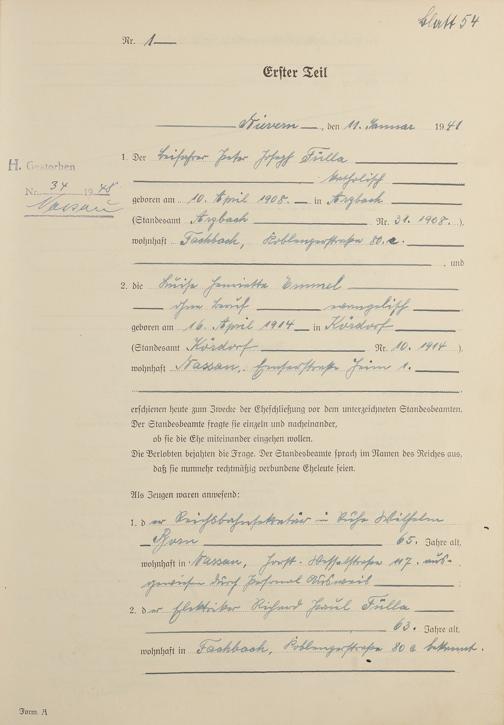 Blatt 54
Nr. 1
Erster Teil
Nievern, den 11. Januar 1941
1. Der Beifahrer Peter Joseph Fülla
katholisch
geboren am 10. April 1908. in Arzbach
(Standesamt Arzbach Nr. 31. 1908.)
wohnhaft Fachbach, Koblenzerstraße 80. a.
, und
H. Gestorben
Nr. 34 1948
Nassau
2. die Luise Henriette Emmel
ohne Beruf evangelisch
geboren am 16. April 1914 in Kördorf
(Standesamt Kördorf Nr. 10. 1914)
wohnhaft Nassau, Emserstraße Heim 1.
erschienen heute zum Zwecke der Eheschließung vor dem unterzeichneten Standesbeamten.
Der Standesbeamte fragte sie einzeln und nacheinander,
ob sie die Ehe miteinander eingehen wollen.
Die Verlobten bejahten die Frage. Der Standesbeamte sprach im Namen des Reiches aus,
daß sie nunmehr rechtmäßig verbundene Eheleute seien.
Als Zeugen waren anwesend:
1. der Reichsbahnsekretär i. Ruhe Wilhelm
65. Jahre alt,
wohnhaft in Nassau, Horst-Wesselstraße 117. aus-
gewiesen durch Personal Ausweis
2. der Elektriker Richard Paul Fülla
63. Jahre alt,
wohnhaft in Fachbach, Koblenzerstraße 80 a bekannt.
Form. A